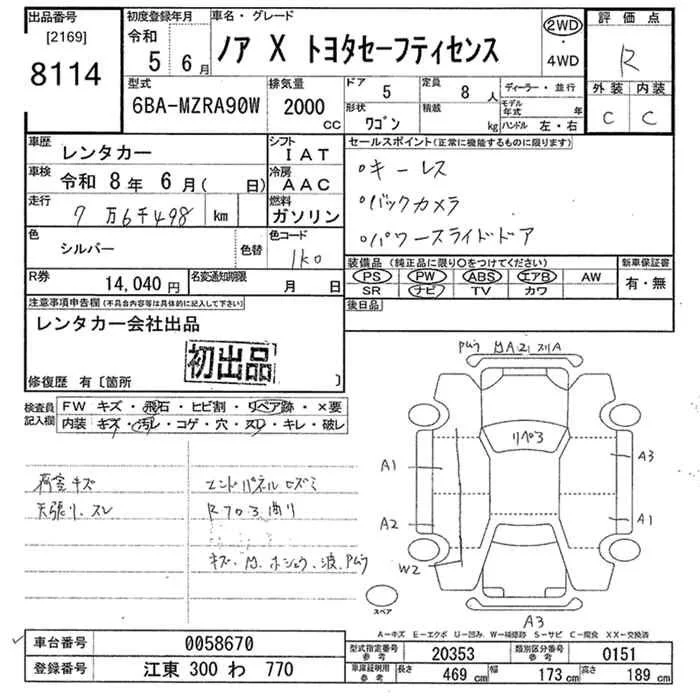 出品番号
[2169]
8114
初度登録年月
令和
5 6月
車名・グレード
ノア X トヨタセーフティセンス
2WD
・
4WD
評価点
R
外装 内装
C C
型式
6BA-MZRA90W
排気量
2000
CC
ドア
5
定員
8 人
形状
ワゴン
積載
kg
ディーラー・並行
モデル年式 年
ハンドル 左・右
車歴
レンタカー
シフト
IAT
車検
令和 8年 6月( 日)
冷房
AAC
走行
7万6千498 km
燃料
ガソリン
色
シルバー
色替
色コード
1k0
R券
14,040円
名変通知期限
月 日
セールスポイント(正常に機能するものに限ります)
○キーレス
○バックカメラ
○パワースライドドア
装備品(純正品に限り○をつけてください)
PS PW ABS エアB AW
SR ナビ TV カワ
新車保証書
有・無
後日品
注意事項申告欄(不具合内容等は具体的に記入して下さい)
レンタカー会社出品
初出品
修復歴 有〔箇所 〕
検査員
記入欄
FW キズ・飛石・ヒビ割・リペア跡・×要
内装 キズ・汚レ・コゲ・穴・スレ・キレ・破レ
荷室キズ
天張り、スレ
エンドパネルヒズミ
Rフロア曲り
リペア
A1
A2
W2
A3
A1
A3
スペア
A-キズ E-エクボ U-凹み W-補修跡 S-サビ C-腐食 XX-交換済
車台番号
0058670
登録番号
江東 300 わ 770
型式指定番号
参考
20353
類別区分番号
参考
0151
車庫証明用
参考
長さ
469 cm
幅
173 cm
高さ
189 cm